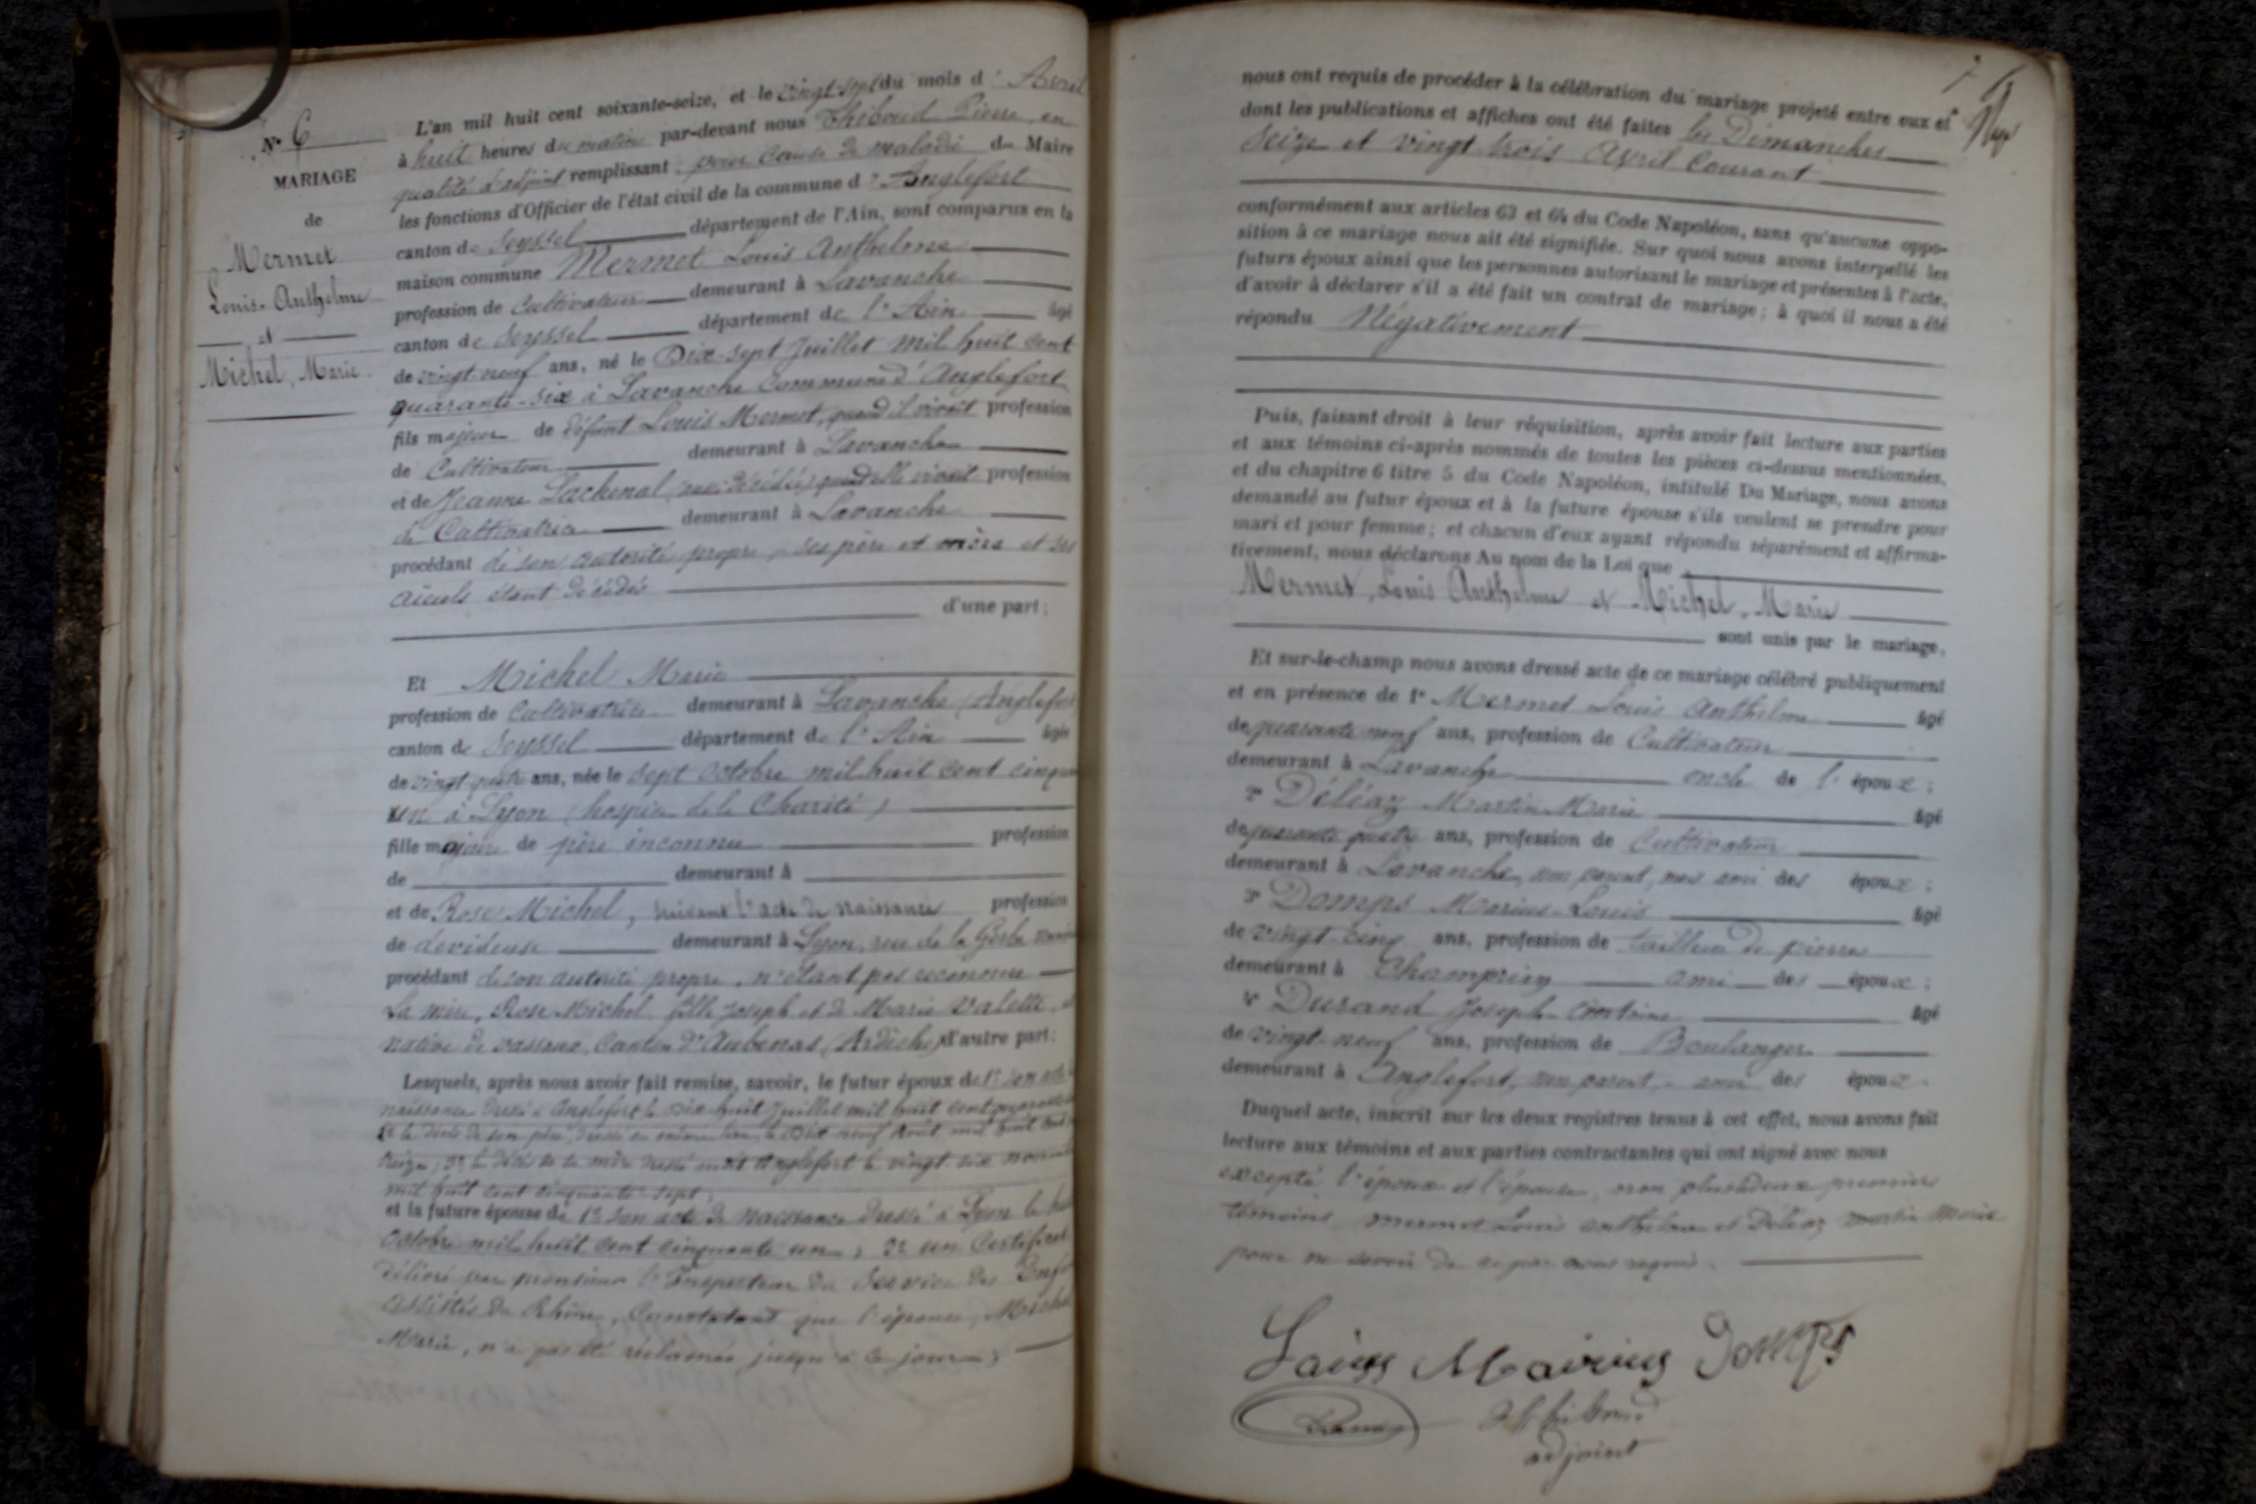 N° 6
MARIAGE
de
Mermet
Louis-Anthelme
et
Michel, Marie
L'an mil huit cent soixante-seize, et le vingt-sept du mois d'Avril
à huit heures du matin par-devant nous Thiboud Pierre, en
qualité d'adjoint remplissant pour cause de maladie du Maire
les fonctions d'Officier de l'état civil de la commune d'Anglefort
canton de Seyssel département de l'Ain, sont comparus en la
maison commune Mermet Louis Anthelme
profession de Cultivateur demeurant à Lavanche
canton de Seyssel département de l'Ain âgé
de vingt-neuf ans, né le Dix-sept Juillet mil huit cent
quarante-six à Lavanche Commune d'Anglefort
fils majeur de défunt Louis Mermet, quand il vivait profession
de Cultivateur demeurant à Lavanche
et de Jeanne Lachenal (aussi décédée) quand elle vivait profession
de Cultivatrice demeurant à Lavanche
procédant de son autorité propre, ses père et mère et ses
aïeuls étant décédés
d'une part;
Et Michel Marie
profession de Cultivatrice demeurant à Lavanche (Anglefort
canton de Seyssel département de l'Ain âgée
de vingt-quatre ans, née le sept octobre mil huit cent cinquante
un à Lyon (hospice de la Charité)
fille majeure de père inconnu profession
de demeurant à
et de Rose Michel, suivant l'acte de naissance profession
de dévideuse demeurant à Lyon, rue de la Gerbe
procédant de son autorité propre, n'étant pas reconnue
La mère, Rose Michel fille Joseph et de Marie Valette,
native de vasseaux, Canton d'Aubenas (Ardèche) d'autre part;
Lesquels, après nous avoir fait remise, savoir, le futur époux de 1° son acte de
naissance dressé à Anglefort le dix-huit Juillet mil huit cent quarante
2° le décès de son père, dressé au même lieu, le dix neuf Août, mil huit cent
3° le décès de sa mère dressé à Anglefort le vingt six novembre
mil huit cent cinquante-sept;
et la future épouse de 1° son acte de naissance dressé à Lyon le huit
octobre mil huit cent cinquante un; 2° un Certificat
délivré par monsieur l'Inspecteur du Service des Enfants
assistés du Rhône, Constatant que l'épouse, Michel
Marie, n'a pas été réclamée jusqu'à ce jour;
nous ont requis de procéder à la célébration du mariage projeté entre eux et
dont les publications et affiches ont été faites les Dimanches
Seize et vingt-trois Avril Courant
conformément aux articles 63 et 64 du Code Napoléon, sans qu'aucune oppo-
sition à ce mariage nous ait été signifiée. Sur quoi nous avons interpellé les
futurs époux ainsi que les personnes autorisant le mariage et présentes à l'acte,
d'avoir à déclarer s'il a été fait un contrat de mariage; à quoi il nous a été
répondu Négativement
Puis, faisant droit à leur réquisition, après avoir fait lecture aux parties
et aux témoins ci-après nommés de toutes les pièces ci-dessus mentionnées,
et du chapitre 6 titre 5 du Code Napoléon, intitulé Du Mariage, nous avons
demandé au futur époux et à la future épouse s'ils veulent se prendre pour
mari et pour femme; et chacun d'eux ayant répondu séparément et affirma-
tivement, nous déclarons Au nom de la Loi que
Mermet, Louis Anthelme et Michel, Marie
sont unis par le mariage.
Et sur-le-champ nous avons dressé acte de ce mariage célébré publiquement
et en présence de 1° Mermet Louis Anthelme âgé
de quarante neuf ans, profession de Cultivateur
demeurant à Lavanche oncle de l'époux;
2° Déléaz Martin Marie âgé
de quarante quatre ans, profession de Cultivateur
demeurant à Lavanche, non parent, mais ami des époux;
3° Domps Marius-Louis âgé
de vingt-cinq ans, profession de tailleur de pierre
demeurant à Champriay ami des époux;
4° Durand Joseph-Antoine âgé
de vingt-neuf ans, profession de Boulanger
demeurant à Anglefort, non parent, ami des époux.
Duquel acte, inscrit sur les deux registres tenus à cet effet, nous avons fait
lecture aux témoins et aux parties contractantes qui ont signé avec nous
excepté l'époux et l'épouse, non plus deux premiers
témoins Mermet Louis anthelme et Déléaz martin Marie
pour ne savoir de ce par nous requis.
Louis Mairius Domps
Durand
Thiboud
adjoint